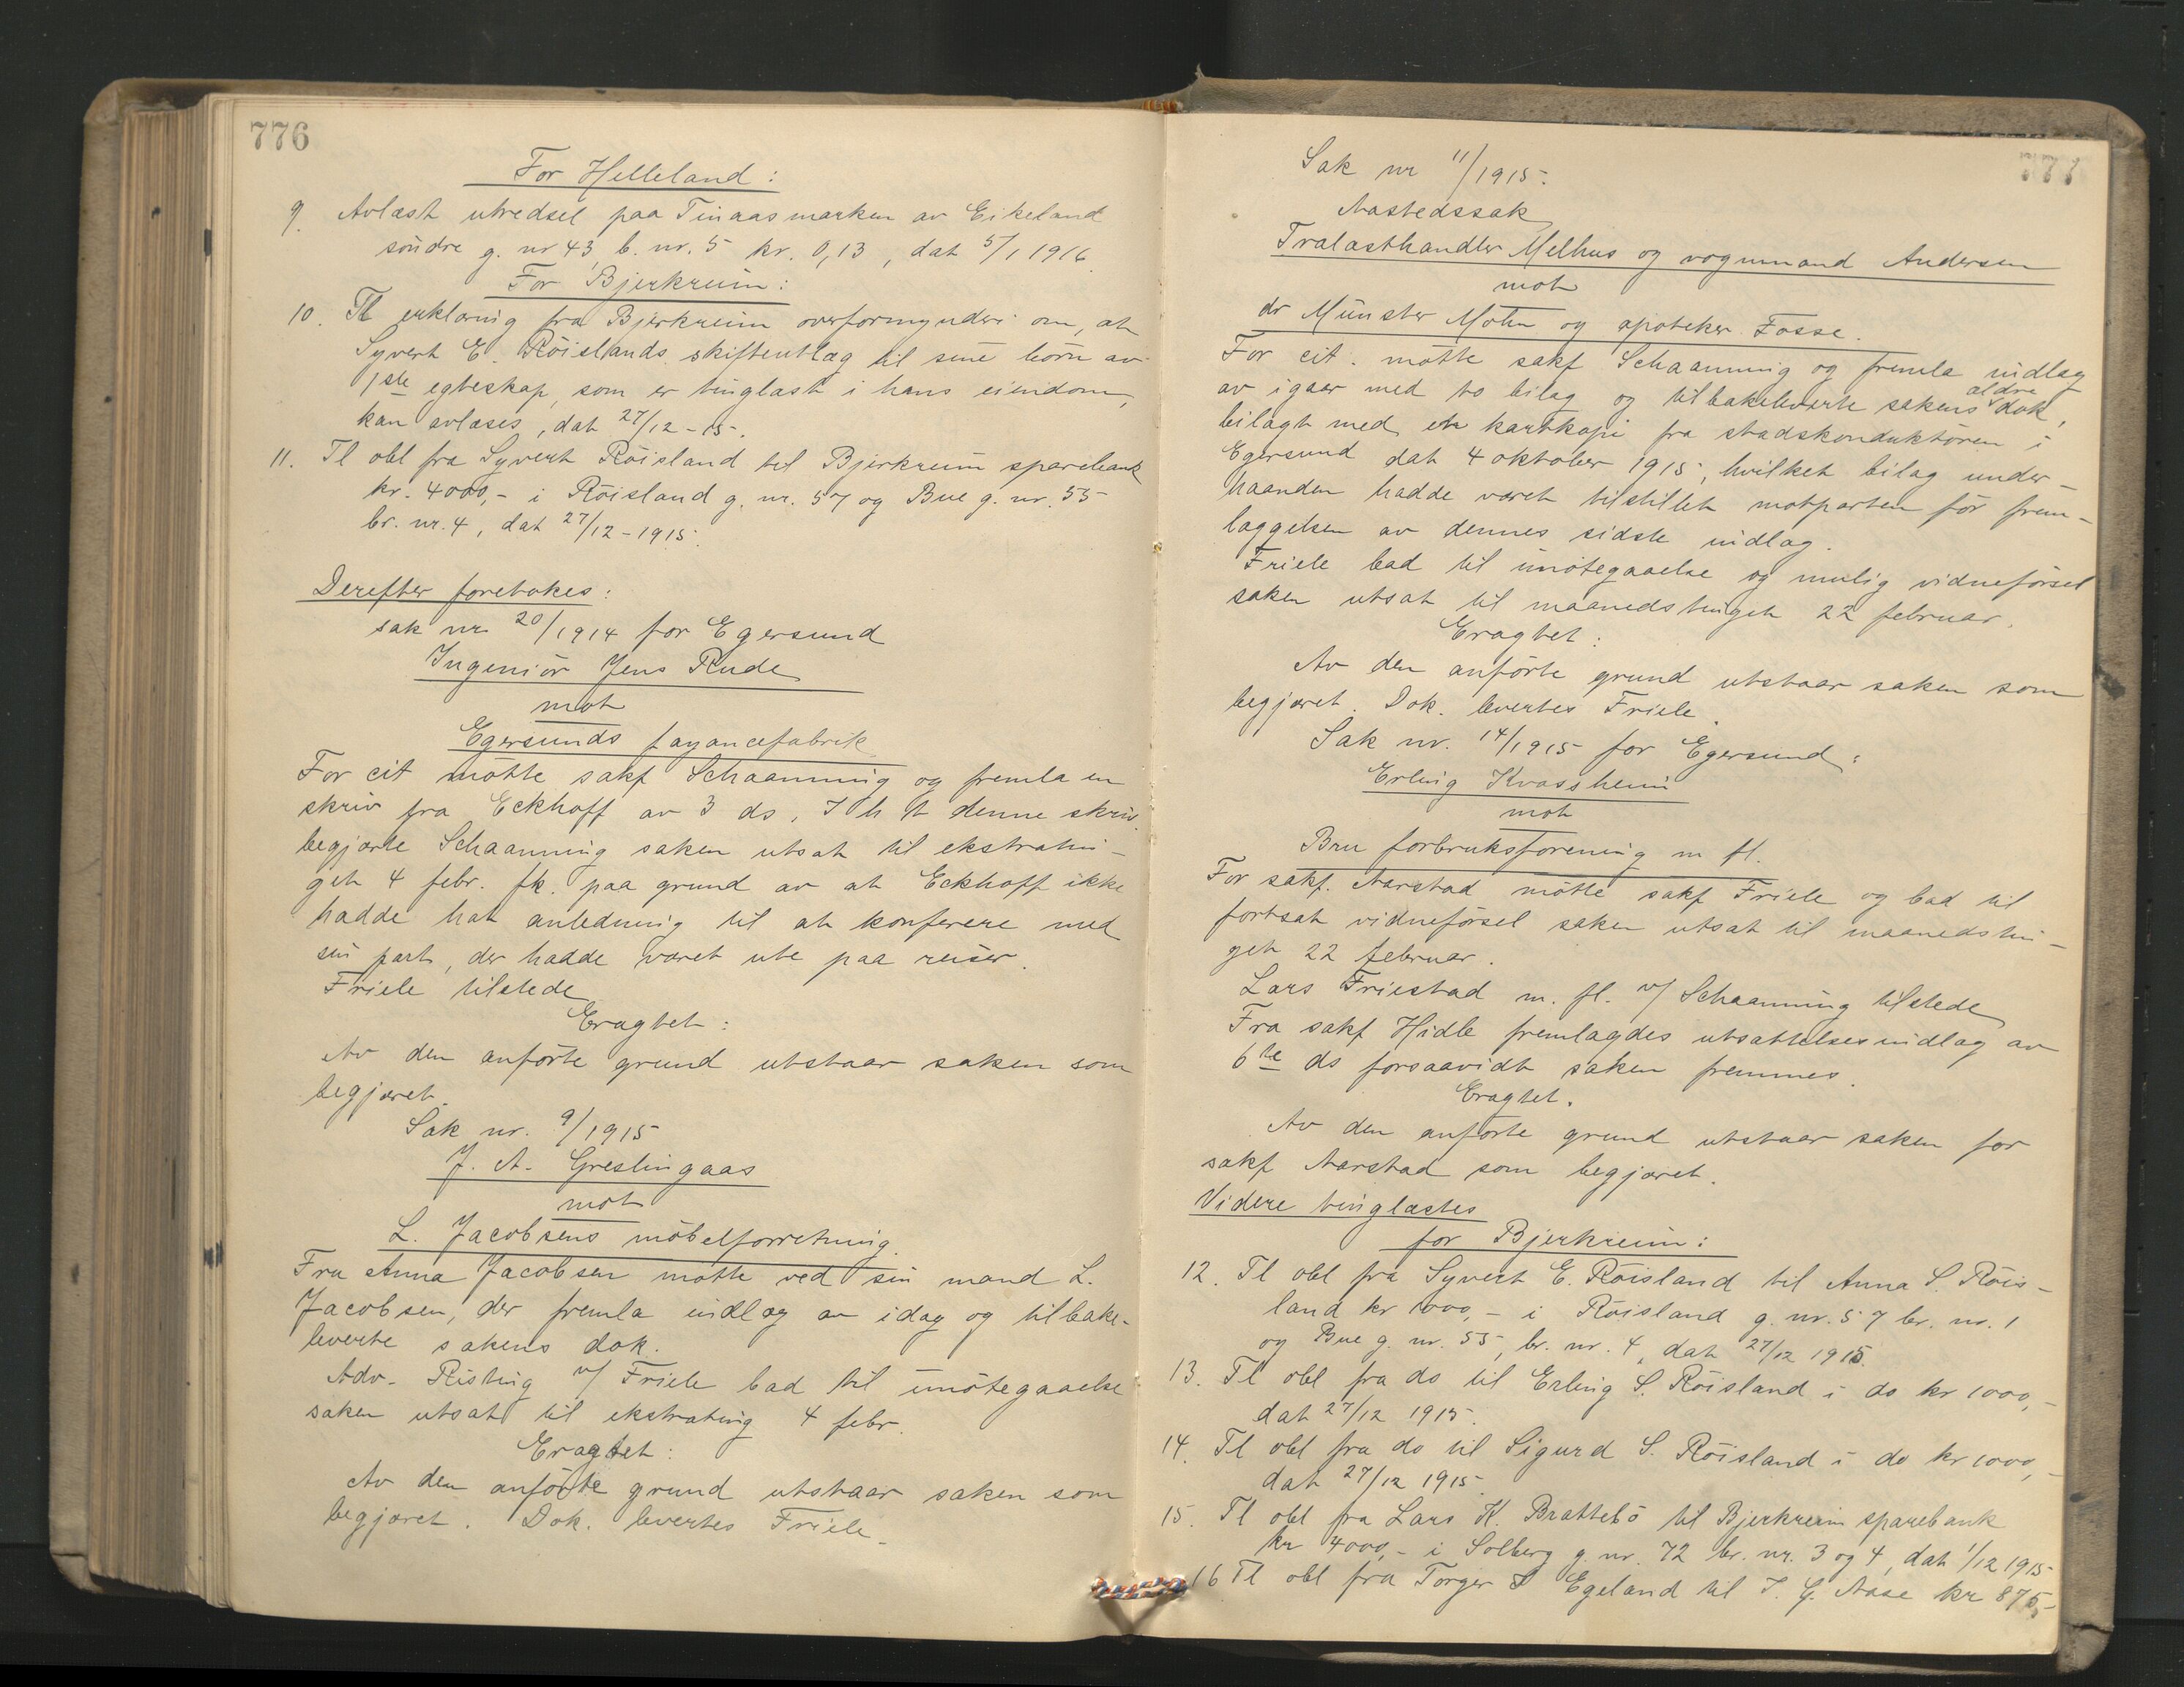 776
For Helleland:
9. Avlæst utredsel paa Tinaasmarken av Eikeland
söndre g. nr 43, b. nr. 5 kr. 0,13, dat 5/1 1916.
For Bjerkreim:
10. Tl erklæring fra Bjerkreim overformynderi om, at
Syvert E. Röislands skifteutlæg til sine börn av
1ste egteskap, som er tinglæst i hans eiendom,
kan avlæses, dat 27/12-15.
11. Tl obl fra Syvert Röisland til Bjerkreim sparebank
kr. 4000,- i Röisland g. nr. 57 og Bue g. nr. 55
br. nr. 4, dat 27/12-1915.
Derefter foretokes:
sak nr 20/1914 for Egersund
Ingeniör Jens Rude
mot
Egersunds fayancefabrik
For cit mötte sakf Schaanning og fremla en
skriv fra Eckhoff av 3 ds. I h t denne skriv.
begjærte Schaanning saken utsat til ekstratin-
get 4 febr. fk. paa grund av at Eckhoff ikke
hadde hat anledning til at konferere med
sin part, der hadde været ute paa reiser.
Friele tilstede
Eragtet:
Av den anförte grund utstaar saken som
begjæret.
Sak nr. 9/1915
J. A. Greslingaas
mot
L. Jacobsens möbelforretning.
Fru Anna Jacobsen mötte ved sin mand L.
Jacobsen, der fremla indlæg av idag og tilbake-
leverte sakens dok.
Adv. Risting v/ Friele bad til imötegaaelse
saken utsat til ekstrating 4 febr.
Eragtet:
Av den anförte grund utstaar saken som
begjæret. Dok. levertes Friele.
777
Sak nr 11/1915.
Aastedssak
Trælasthandler Melhus og vognmand Andersen
mot
dr Münster Mohn og apoteker Fosse.
For cit. mötte sakf Schaanning og fremla indlæg
av igaar med to bilag og tilbakeleverte sakens ældre dok,
bilagt med en kartkopi fra stadskonduktören i
Egersund dat 4 oktober 1915, hvilket bilag under-
haanden hadde været tilstillet motparten för frem-
læggelsen av dennes sidste indlæg.
Friele bad til imötegaaelse og mulig vidneförsel
saken utsat til maanedstinget 22 februar.
Eragtet:
Av den anförte grund utstaar saken som
begjæret. Dok. levertes Friele.
Sak nr. 14/1915 for Egersund:
Erling Kvassheim
mot
Bru forbruksforening m fl.
For sakf. Aarstad mötte sakf Friele og bad til
fortsat vidneförsel saken utsat til maanedstin-
get 22 februar.
Lars Friestad m. fl. v/ Schaanning tilstede
Fra sakf Hidle fremlagdes utsættelsesindlæg av
6te ds forsaavidt saken fremmes.
Eragtet.
Av den anförte grund utstaar saken for
sakf Aarstad som begjæret.
Videre tinglæstes
for Bjerkreim:
12. Tl obl fra Syvert E. Röisland til Anna S. Röis-
land kr 1000,- i Röisland g. nr. 57 br. nr. 1
og Bue g. nr. 55, br. nr. 4, dat 27/12 1915.
13. Tl obl fra do til Erling S. Röisland i do kr 1000,-
dat 27/12 1915.
14. Tl obl fra do til Sigurd S. Röisland i do kr 1000,-
dat 27/12 1915.
15. Tl obl fra Lars K. Brattebö til Bjerkreim sparebank
kr 4000,- i Solberg g. nr. 72 br. nr. 3 og 4, dat 1/12 1915
16 Tl obl fra Torger Egeland til J. G. Aase kr 875,-